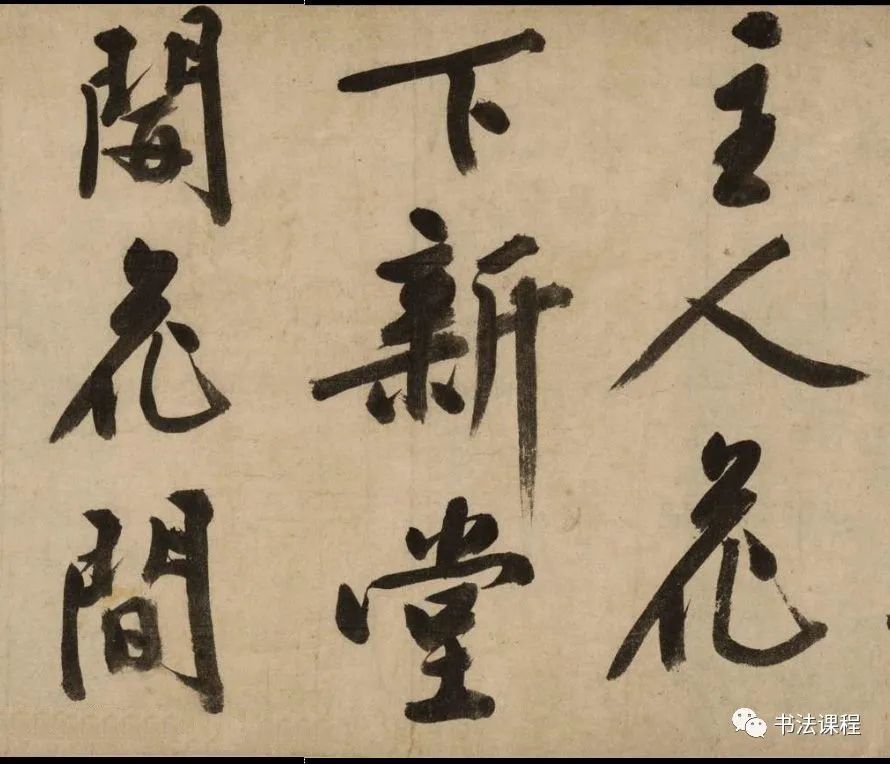 主人花
下新堂
開花間
书法课程